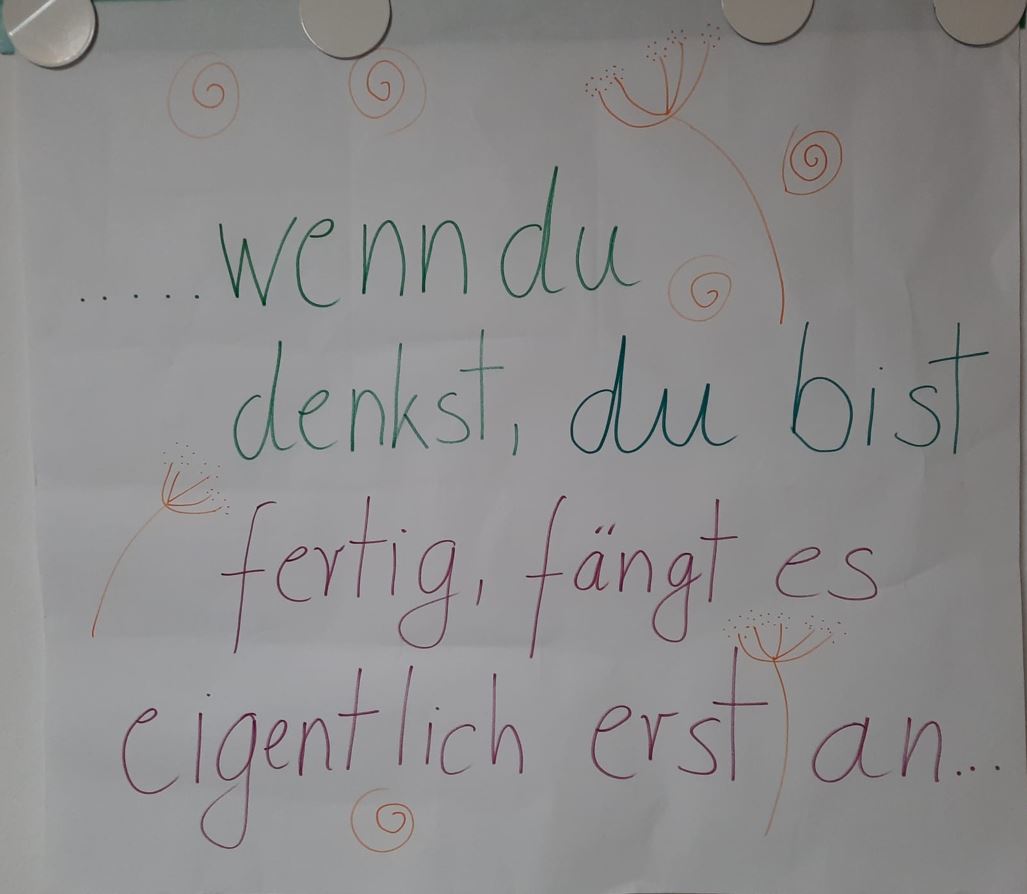 .....wenn du
denkst, du bist
fertig, fängt es
eigentlich erst an...